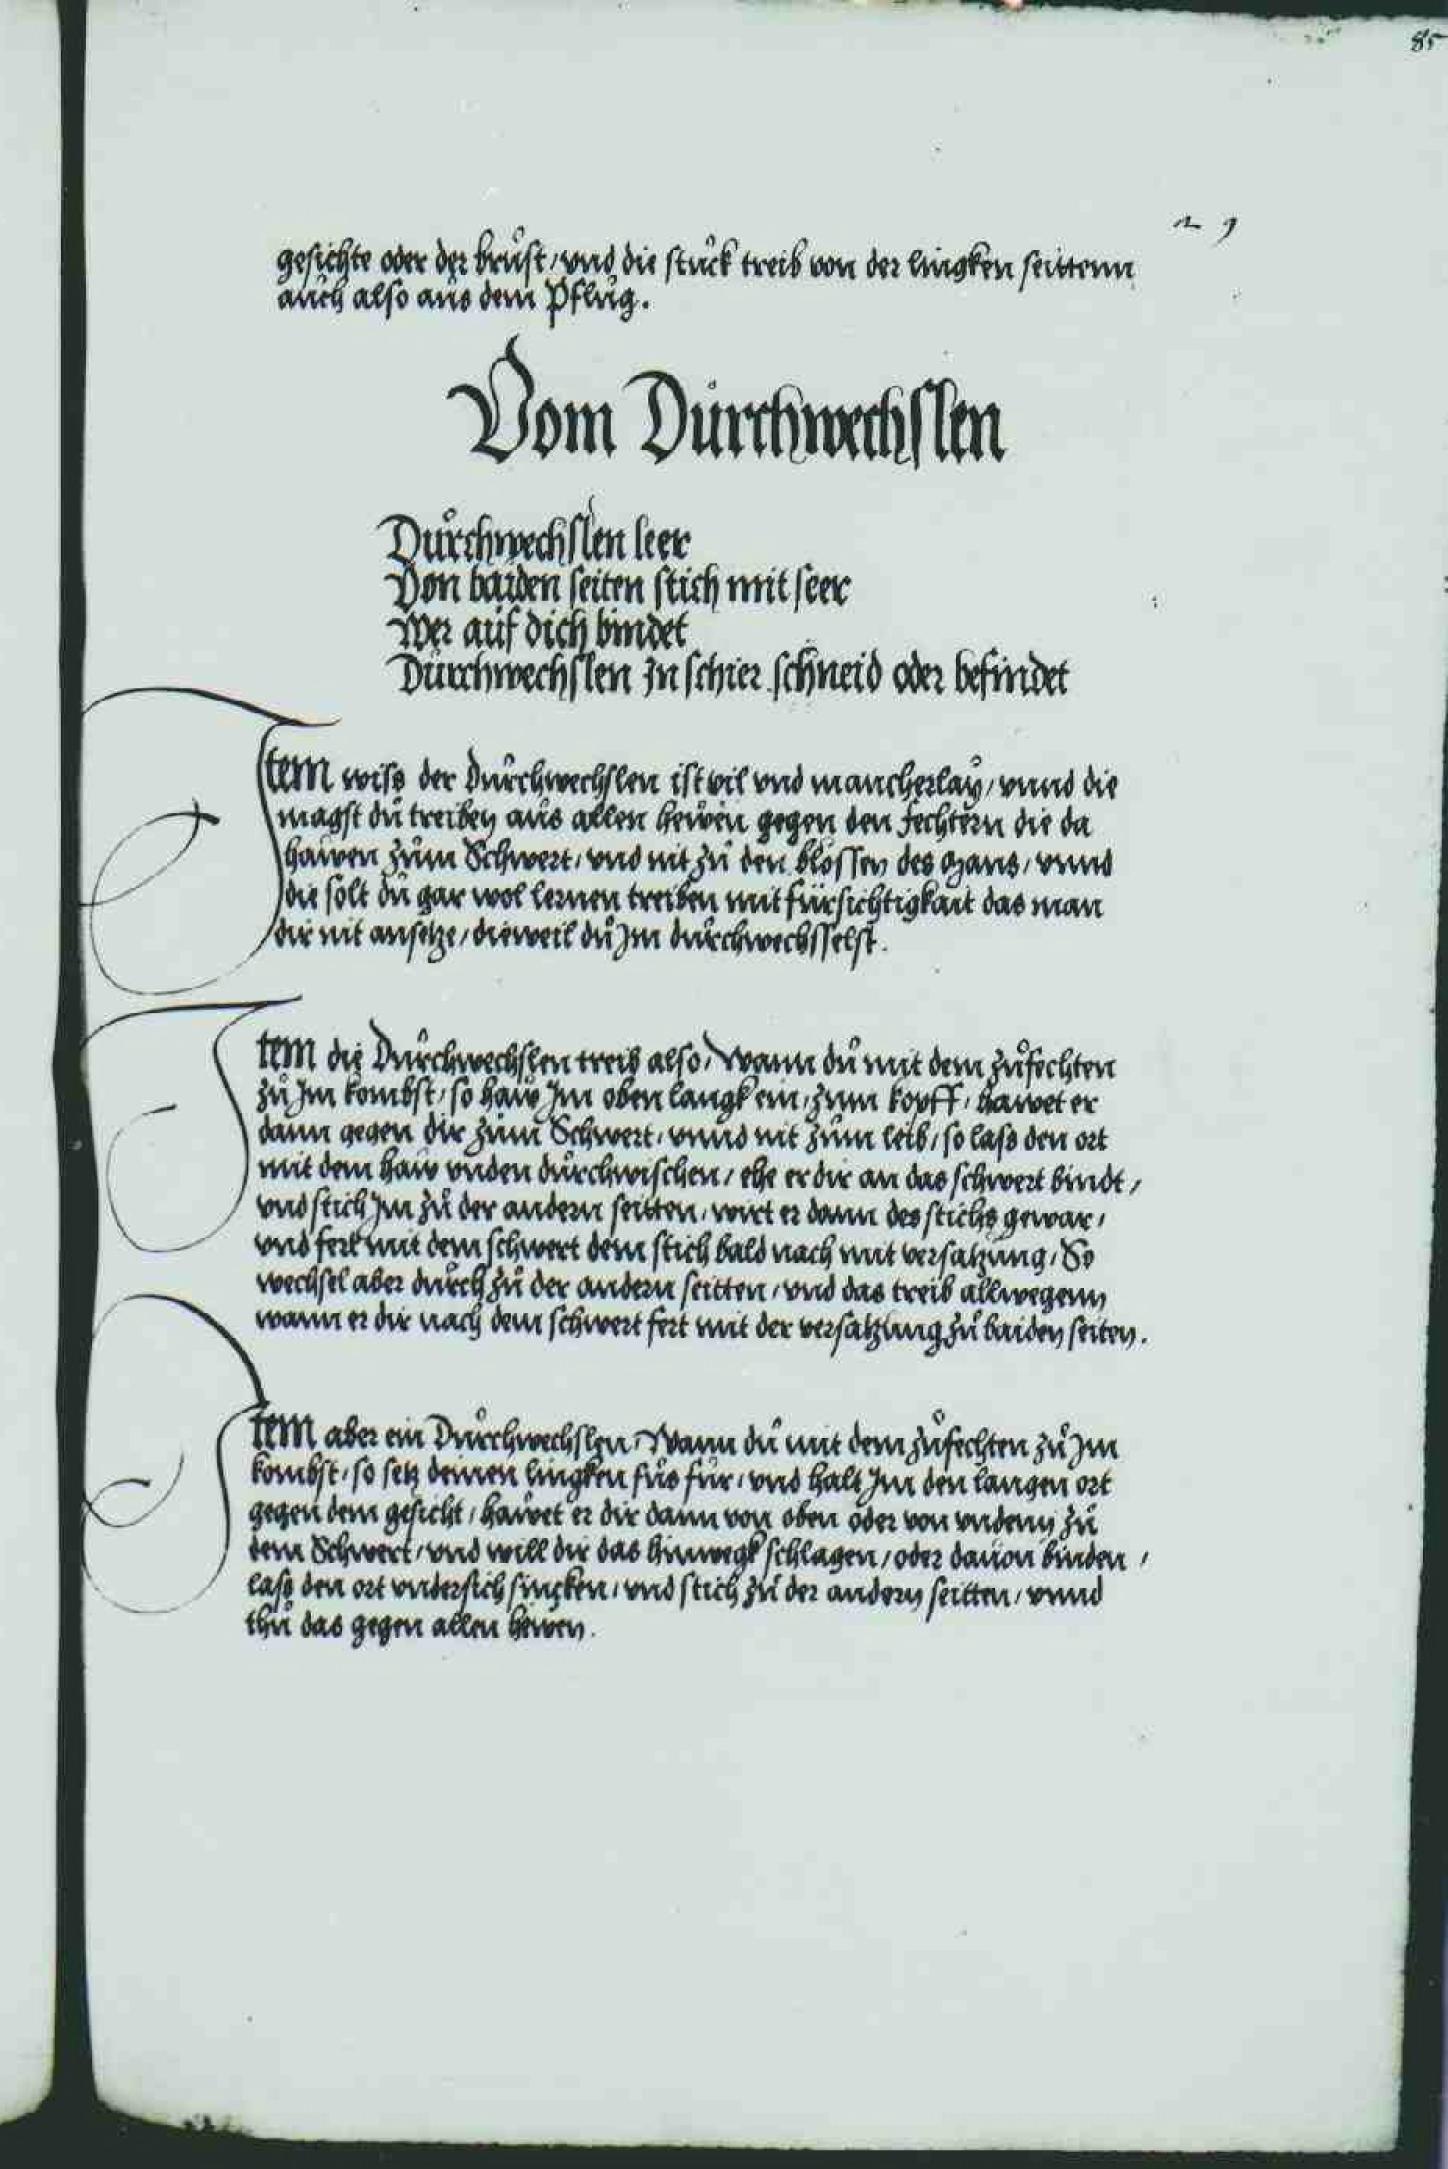 85
gesichte oder der brůst, vnd die stůck treib von der lingken seittenn
aůch also aůs dem Pflůg.
Vom Důrchwechslen
Důrchwechslen leer
Von baiden seiten stich mit seer
Wer auf dich bindet
Důrchwechslen In schier schneid oder befindet
Item wiss der Důrchwechslen ist vil vnd mancherlay, vnnd die
magst dů treiben aůs allen hewen gegen den Fechtern die da
hawen zům Schwert, vnd nit zů den blossen des Mans, vnnd
die solt dů gar wol lernen treiben mit fürsichtigkait das man
dir nit ansetze, dieweil dů Im důrchwechsselst.
Item die Důrchwechslen treib also, Wann dů mit dem zůfechten
zů Im kombst, so haw Im oben langk ein, zům kopff, hawet er
dann gegen dir zům Schwert, vnnd nit zům leib, so lass den ort
mit dem haw vnden důrchwischen, ehe er dir an das schwert bindt,
vnd stich Im zů der andern seitten, wirt er dann des stichs gewar,
vnd fert mit dem schwert dem stich bald nach mit versatzung, So
wechsel aber důrch zů der andern seitten, vnd das treib allwegenn
wann er dir nach dem schwert fert mit der versatzung zů baiden seiten.
Item aber ein Důrchwechslen, Wann dů mit dem zůfechten zů Im
kombst, so setz deinen lingken fůs für, vnd halt Im den langen ort
gegen dem gesicht, hawet er dir dann von oben oder von vndenn zů
dem Schwert, vnd will dir das hinwegk schlagen, oder dauon binden,
lass den ort vndersich sincken, vnd stich zů der andern seitten, vnnd
thů das gegen allen hewen.